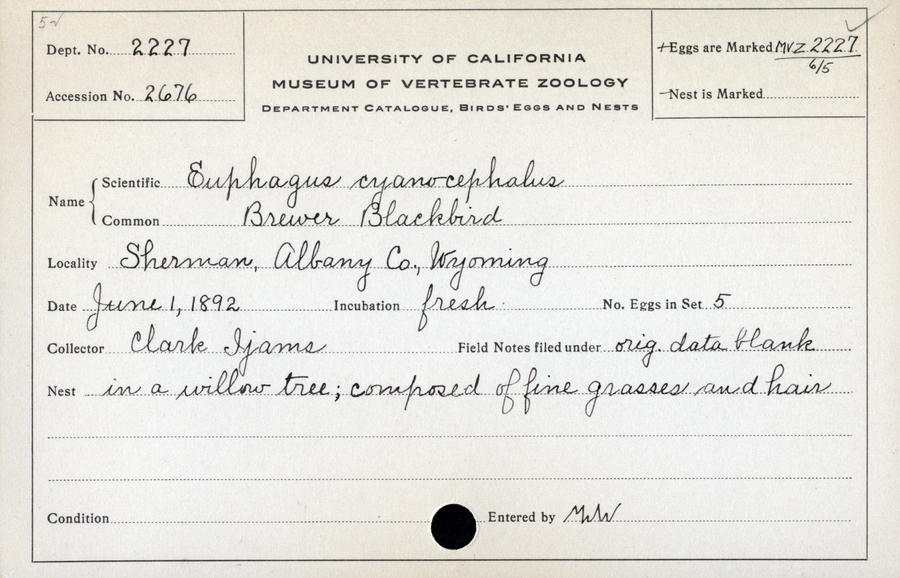 5
Dept. No. 2227
Accession No. 2676
UNIVERSITY OF CALIFORNIA
MUSEUM OF VERTEBRATE ZOOLOGY
DEPARTMENT CATALOGUE, BIRDS' EGGS AND NESTS
Eggs are Marked MVZ 2227
6/5
Nest is Marked
Name
Scientific Euphagus cyanocephalus
Common Brewer Blackbird
Locality Sherman, Albany Co., Wyoming
Date June 1, 1892 Incubation fresh No. Eggs in Set 5
Collector Clark Ijams Field Notes filed under orig. data blank
Nest in a willow tree; composed of fine grasses and hair
Condition Entered by